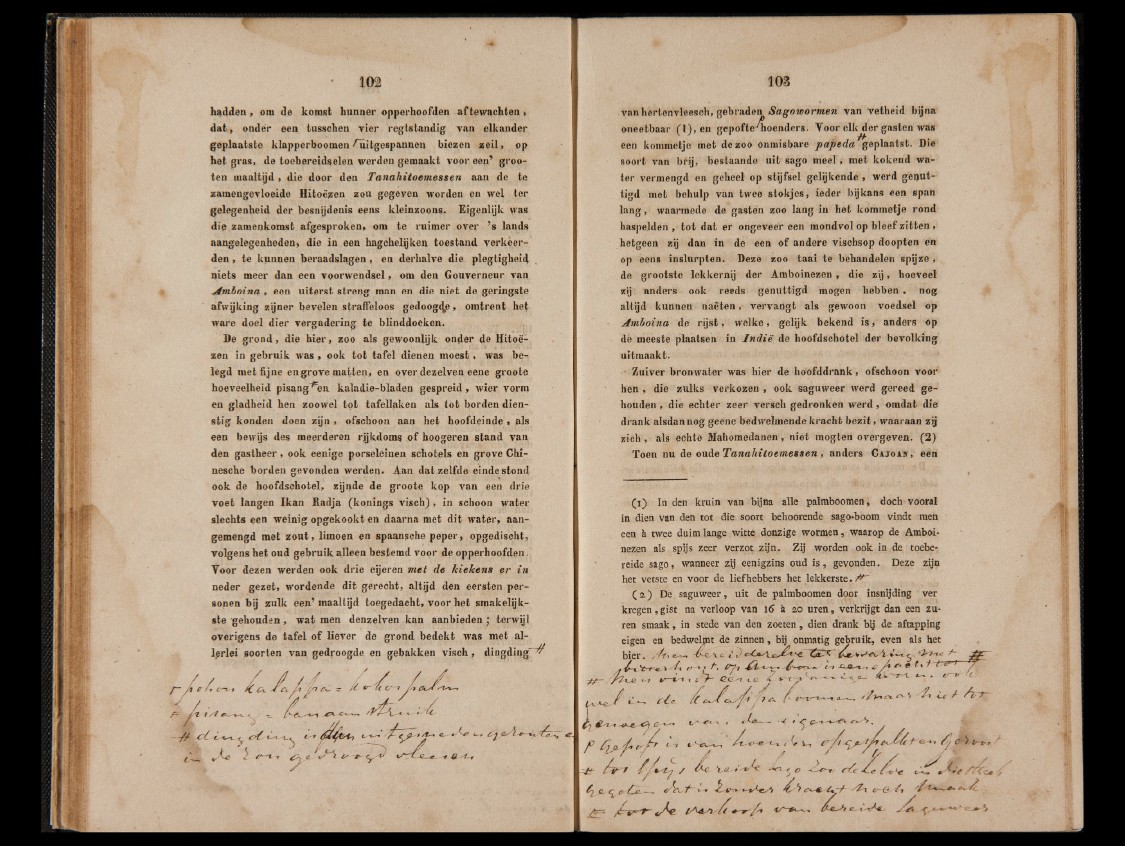 102
hadden, om de komst hunner opperhoofden aftewachten,
dat, onder een tusschen vier regtstandig van elkander
geplaatste klapperboomen uitgespannen biezen zeil, op
het gras, de toebereidselen werden gemaakt voor een' groo-
ten maaltijd, die door den Tanahitoemessen aan de te
zamengevloeide Hitoëzen zou gegeven worden en wel ter
gelegenheid der besnijdenis eens kleinzoons. Eigenlijk was
die zamenkomst afgesproken, om te ruimer over 's lands
aangelegenheden, die in een hagchelijken toestand verkeer-
den, te kunnen beraadslagen, en derhalve die plegtigheid
niets meer dan een voorwendsel, om den Gouverneur van
Amboina, een uiterst streng man en die niet de geringste
afwijking zijner bevelen straffeloos gedoogde, omtrent het
ware doel dier vergadering te blinddoeken.
De grond, die hier, zoo als gewoonlijk onder de Hitoë-
zen in gebruik was, ook tot tafel dienen moest, was be-
legd met fijne en grove matten, en over dezelven eene groote
hoeveelheid pisang en kaladie-bladen gespreid, wier vorm
en gladheid hen zoowel tot tafellaken als tot borden dien-
stig konden doen zijn, ofschoon aan het hoofdeinde, als
een bewijs des meerderen rijkdoms of hoogeren stand van
den gastheer, ook eenige porseleinen schotels en grove Chi-
nesche borden gevonden werden. Aan dat zelfde einde stond
ook de hoofdschotel, zijnde de groote kop van een drie
voet langen Ikan Radja (konings visch), in schoon water
slechts een weinig opgekookt en daarna met dit water, aan-
gemengd met zout, limoen en spaansche peper, opgedischt,
volgens het oud gebruik alleen bestemd voor de opperhoofden.
Voor dezen werden ook drie eijeren met de kiekens er in
neder gezet, wordende dit gerecht, altijd den eersten per-
sonen bij zulk een' maaltijd toegedacht, voor het smakelijk-
ste gehouden, wat men denzelven kan aanbieden; terwijl
overigens de tafel of liever de grond bedekt was met al-
lerlei soorten van gedroogde en gebakken visch, dingding #
pohon kalappa = kokos palm
pisang = banaan struik
# dingding is uitgesneden gezouten
in de zon gedroogd vleesch
103
van hertenvleesch, gebraden Sagowormen van vetheid bijna
oneetbaar (1), en gepofte hoenders. Voor elk der gasten was
een kommetje met de zoo onmisbare papeda # geplaatst. Die
soort van brij, bestaande uit sago meel, met kokend wa-
ter vermengd en geheel op stijfsel gelijkende, werd genut-
tigd met behulp van twee stokjes, ieder bijkans een span
lang, waarmede de gasten zoo lang in het kommetje rond
haspelden, tot dat er ongeveer een mondvol op bleef zitten,
hetgeen zij dan in de een of andere vischsop doopten en
op eens inslurpten. Deze zoo taai te behandelen spijze,
de grootste lekkernij der Amboinezen, die zij, hoeveel
zij anders ook reeds genuttigd mogen hebben, nog
altijd kunnen naëten, vervangt als gewoon voedsel op
Amboina de rijst, welke, gelijk bekend is, anders op
de meeste plaatsen in Indië de hoofdschotel der bevolking
uitmaakt.
Zuiver bronwater was hier de hoofddrank, ofschoon voor
hen, die zulks verkozen, ook saguweer werd gereed ge-
houden, die echter zeer versch gedronken werd, omdat die
drank alsdan nog geene bedwelmende kracht bezit, waaraan zij
zich, als echte Mahomedanen, niet mogten overgeven. (2)
Toen nu de oude Tanahitoemessen, anders CAJOAN, een
(1) In den kruin van bijna alle palmboomen, doch vooral
in dien van den tot die soort behoorende sago-boom vindt men
een à twee duim lange witte donzige wormen, waarop de Amboi-
nezen als spijs zeer verzot zijn. Zij worden ook in de toebe-
reide sago, wanneer zij eenigzins oud is, gevonden. Deze zijn
het vetste en voor de liefhebbers het lekkerste. #
(2) De saguweer, uit de palmboomen door insnijding ver
kregen, gist na verloop van 16 à 20 uren, verkrijgt dan een zu-
ren smaak, in stede van den zoeten, dien drank bij de aftapping
eigen en bedwelmt de zinnen, bij onmatig gebruik, even als het
bier. Men bereid dezelve tot bewaring met #
bitterhout. op Ambon is eene
# Men vindt eene ook
wel in de kalappa boomen maar niet tot
genoegen van den eigenaar.
Gepoft is van hoenders en geroost
# tot spijs bereide sago zoo dezelve
gegeten dat is zonder kracht noch smaak
tot de verkoop van bereide saguweer